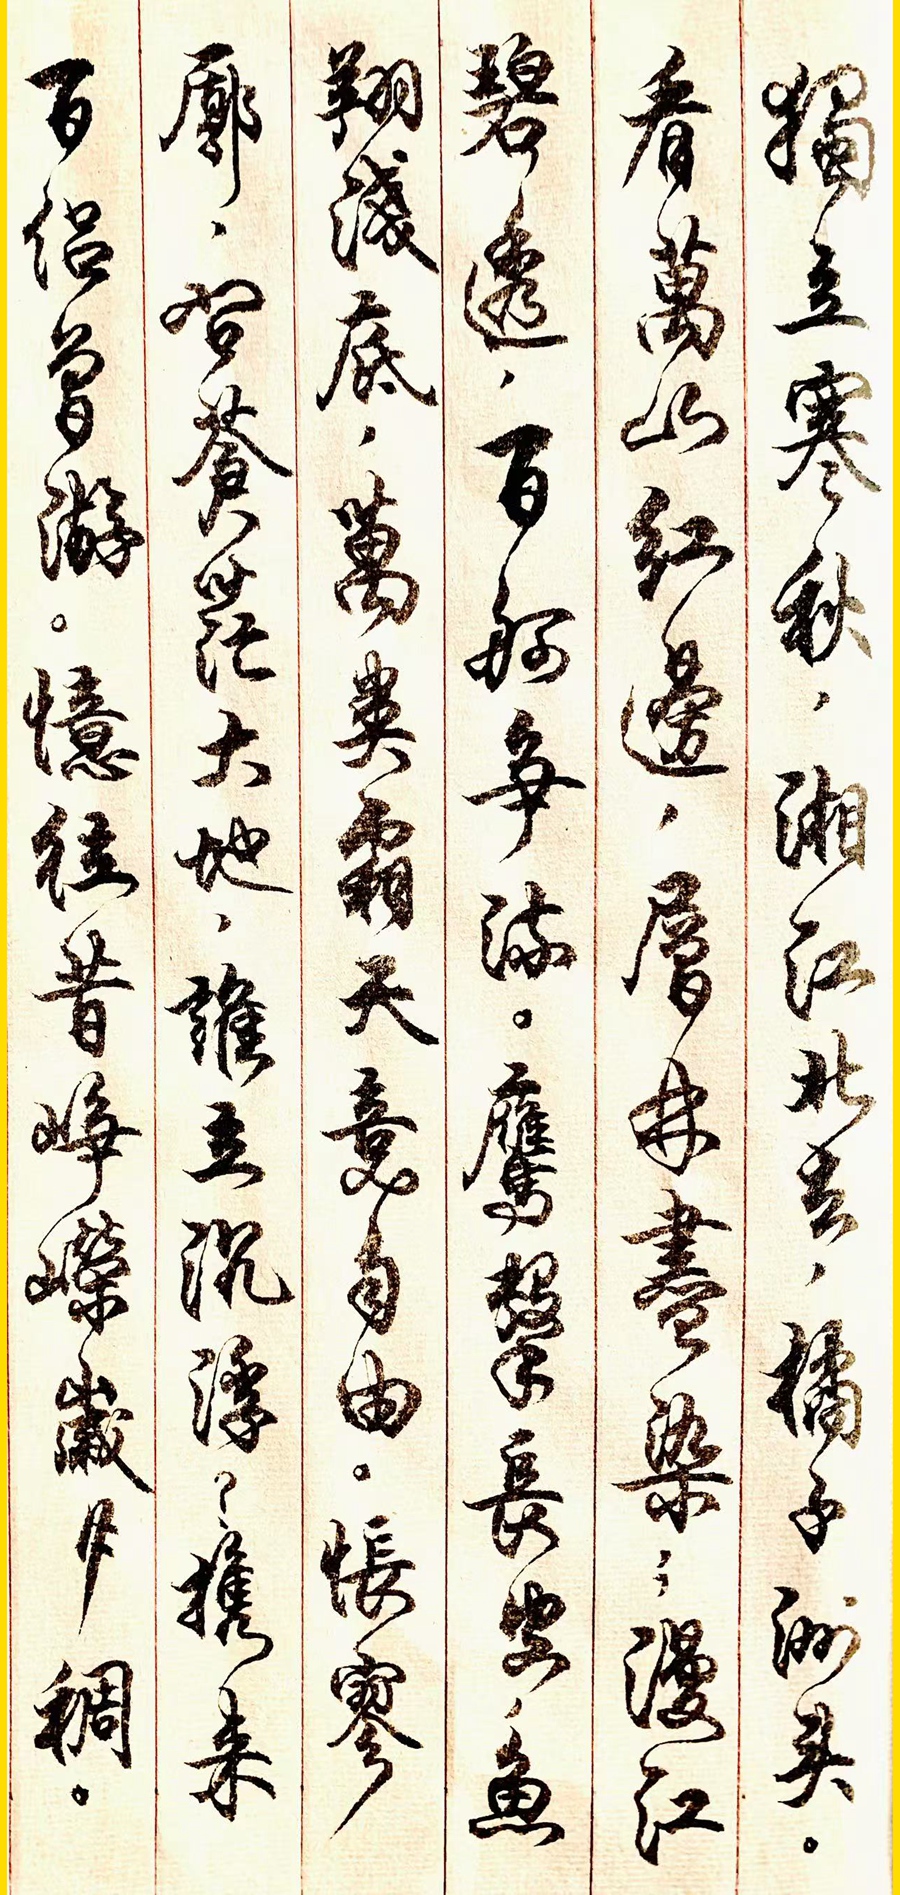 獨立寒秋，湘江北去，橘子洲头。
看萬山红邊，層林盡染；漫江
碧透，百舸争流。鷹擊長空，魚
翔淺底，萬类霜天竞自由。悵寥
廓，问蒼茫大地，誰主沉浮？携来
百侣曾游。憶往昔峥嶸歲月稠。